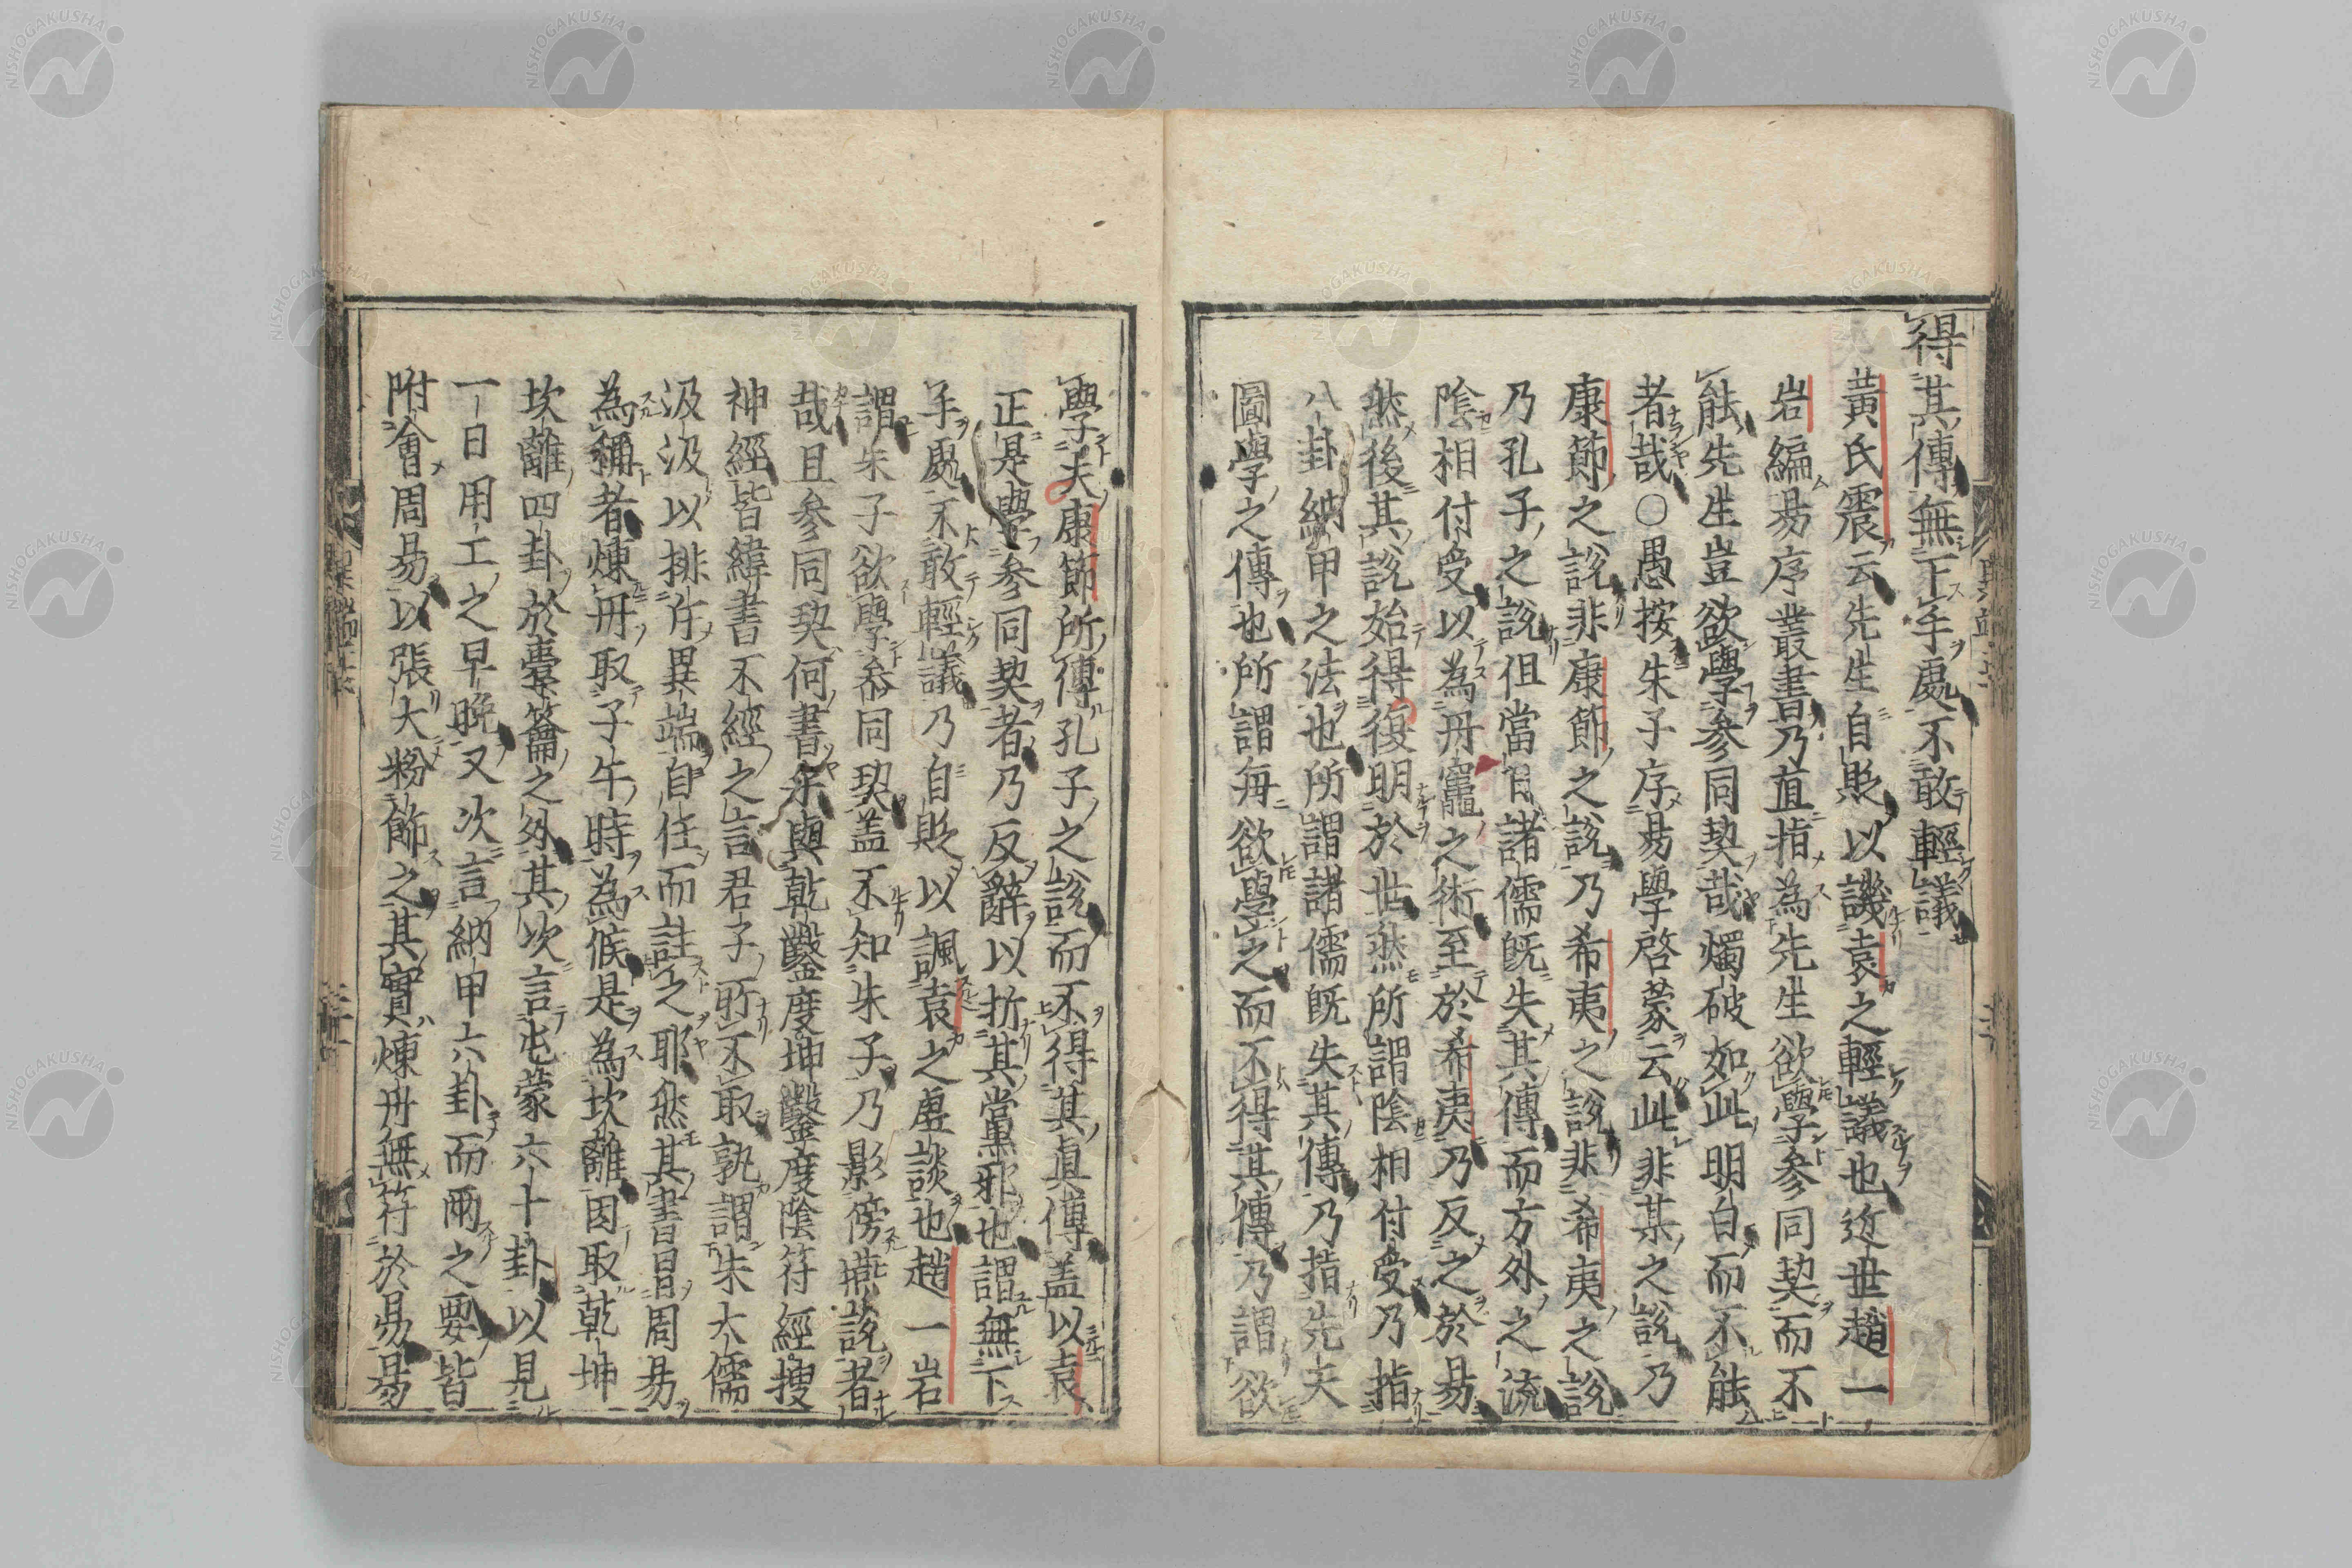 得其傳無下手處不敢輕議
黃氏震云先生自貶以譏袁之輕議也近世趙一
岩編易序叢書乃直指為先生欲學參同契而不
能先生豈欲學參同契哉燭破如此明白而不能
者哉○愚按朱子序易學啓蒙云此非某之説乃
康節之説非康節之説乃希夷之説非希夷之説
乃孔子之説但當日諸儒既失其傳而方外之流
陰相付受以為丹竈之術至於希夷乃反之於易
然後其説始得復明於世然所謂陰相付受乃指
八卦納甲之法也所謂諸儒既失其傳乃指先天
圖學之傳也所謂每欲學之而不得其傳乃謂欲
學夫康節所傳孔子之説而不得其眞傳盖以袁
正是學參同契者乃反辭以折其黨邪也謂無下
手處不敢輕議乃自貶以諷袁之虛談也趙一岩
謂朱子欲學參同契盖不知朱子乃影傍燕説者
哉且參同契何書乎與乾鑿度坤鑿度陰符經搜
神經皆緯書不經之言君子所不取孰謂朱大儒
汲汲以排斥異端自任而註之耶然其書冒周易
為稱者煉丹取子午時為候是為坎離因取乾坤
坎離四卦於橐籥之外其次言屯蒙六十卦以見
一日用工之早晩又次言納甲六卦而兩之要皆
附會周易以張大粉飾之其實煉丹無符於易易